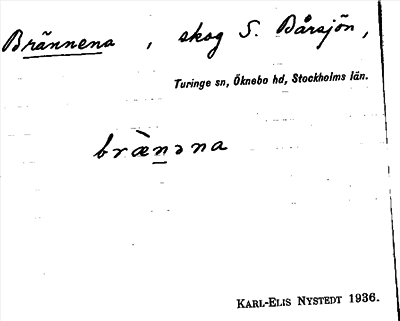 Brännena, skog S. Bårsjön,
Turinge sn, Öknebo hd, Stockholms län.
bræ̀nəna
KARL-ELIS NYSTEDT 1936.